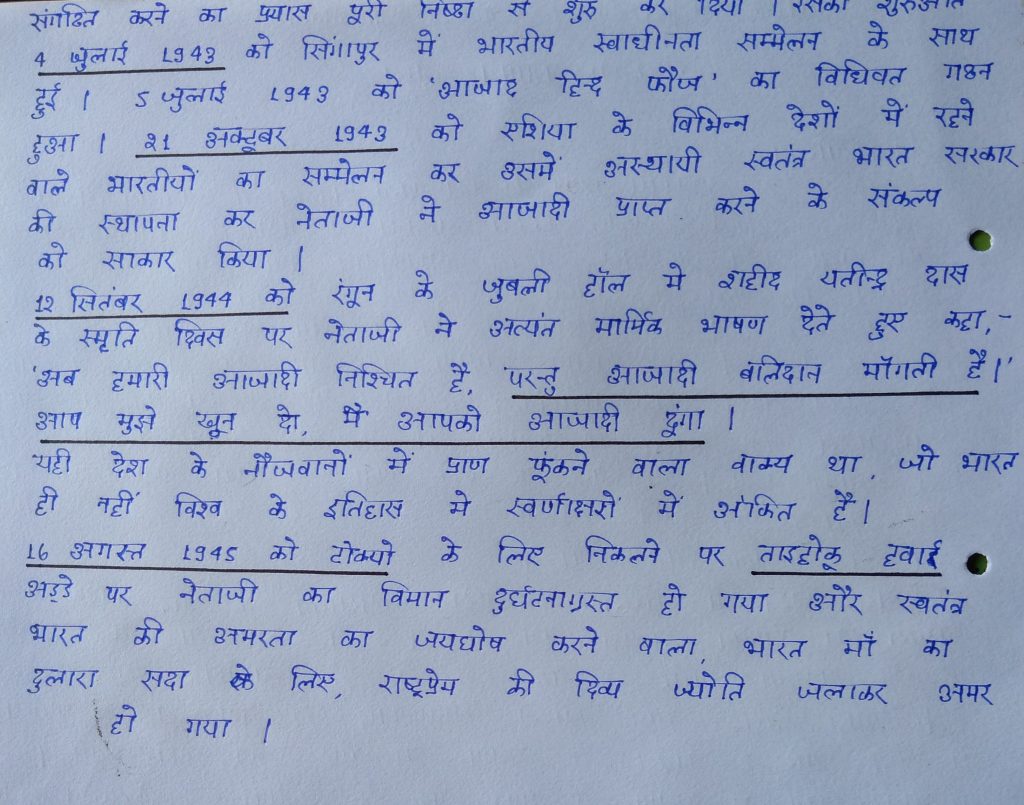 संगठित करने का प्रयास पूरी निष्ठा से शुरु कर दिया । इसकी शुरुआत
4 जुलाई 1943 को सिंगापुर में भारतीय स्वाधीनता सम्मेलन के साथ
हुई । 5 जुलाई 1943 को 'आजाद हिन्द फौज' का विधिवत गठन
हुआ । 21 अक्टूबर 1943 को एशिया के विभिन्न देशों में रहने
वाले भारतीयों का सम्मेलन कर उसमें अस्थायी स्वतंत्र भारत सरकार
की स्थापना कर नेताजी ने आजादी प्राप्त करने के संकल्प
को साकार किया ।
12 सितंबर 1944 को रंगून के जुबली हॉल मे शहीद यतीन्द्र दास
के स्मृति दिवस पर नेताजी ने अत्यंत मार्मिक भाषण देते हुए कहा,-
'अब हमारी आजादी निश्चित है, परन्तु आजादी बलिदान माँगती है।'
आप मुझे खून दो, मैं आपको आजादी दूंगा ।
यही देश के नौजवानों में प्राण फूंकने वाला वाक्य था, जो भारत
ही नहीं विश्व के इतिहास मे स्वर्णाक्षरों में अंकित है।
16 अगस्त 1945 को टोक्यो के लिए निकलने पर ताइहोकू हवाई
अड्डे पर नेताजी का विमान दुर्घटनाग्रस्त हो गया और स्वतंत्र
भारत की अमरता का जयघोष करने वाला, भारत माँ का
दुलारा सदा के लिए, राष्ट्रप्रेम की दिव्य ज्योति जलाकर अमर
हो गया ।